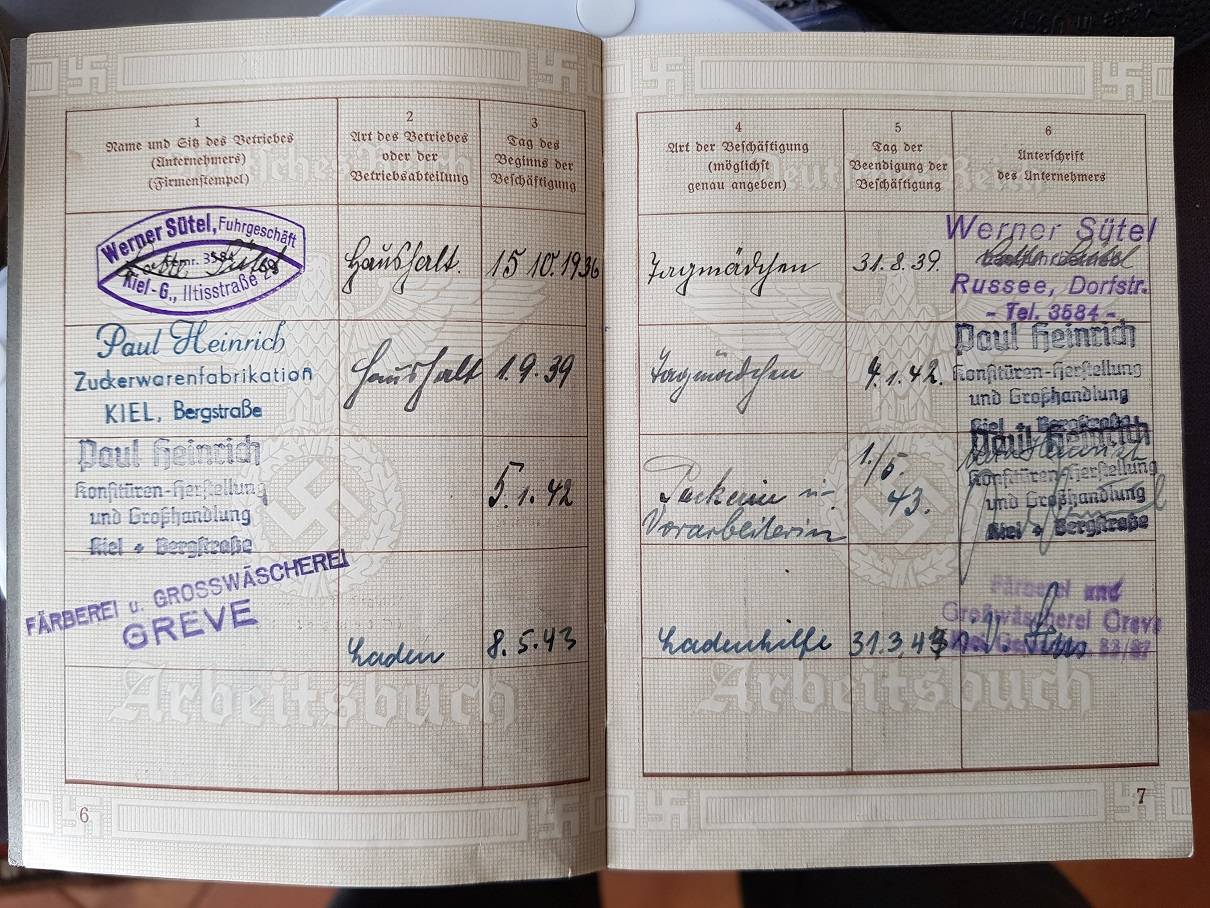 1
Name und Sitz des Betriebes
(Unternehmers)
(Firmenstempel)
2
Art des Betriebes
oder der
Betriebsabteilung
3
Tag des
Beginns der
Beschäftigung
Werner Sütel, Fuhrgeschäft
3584
Kiel-G., Iltisstraße
Haushalt.
15 10. 1936
Paul Heinrich
Zuckerwarenfabrikation
KIEL, Bergstraße
Haushalt
1. 9. 39
Paul Heinrich
Konfitüren-Herstellung
und Großhandlung
Kiel + Bergstraße
5. 1. 42
FÄRBEREI u. GROSSWÄSCHEREI
GREVE
Laden
8. 5. 43
Arbeitsbuch
6
4
Art der Beschäftigung
(möglichst
genau angeben)
5
Tag der
Beendigung der
Beschäftigung
6
Unterschrift
des Unternehmers
Tagmädchen
31. 8. 39.
Werner Sütel
Russee, Dorfstr.
- Tel. 3584 -
Tagmädchen
4. 1. 42.
Paul Heinrich
Konfitüren-Herstellung
und Großhandlung
Kiel + Bergstraße
Packerin u-
Vorarbeiterin
1/5.
43.
Paul Heinrich
Konfitüren-Herstellung
und Großhandlung
Kiel + Bergstraße
Ladenhilfe
31.3.
Färberei und
Großwäscherei Greve
Arbeitsbuch
7